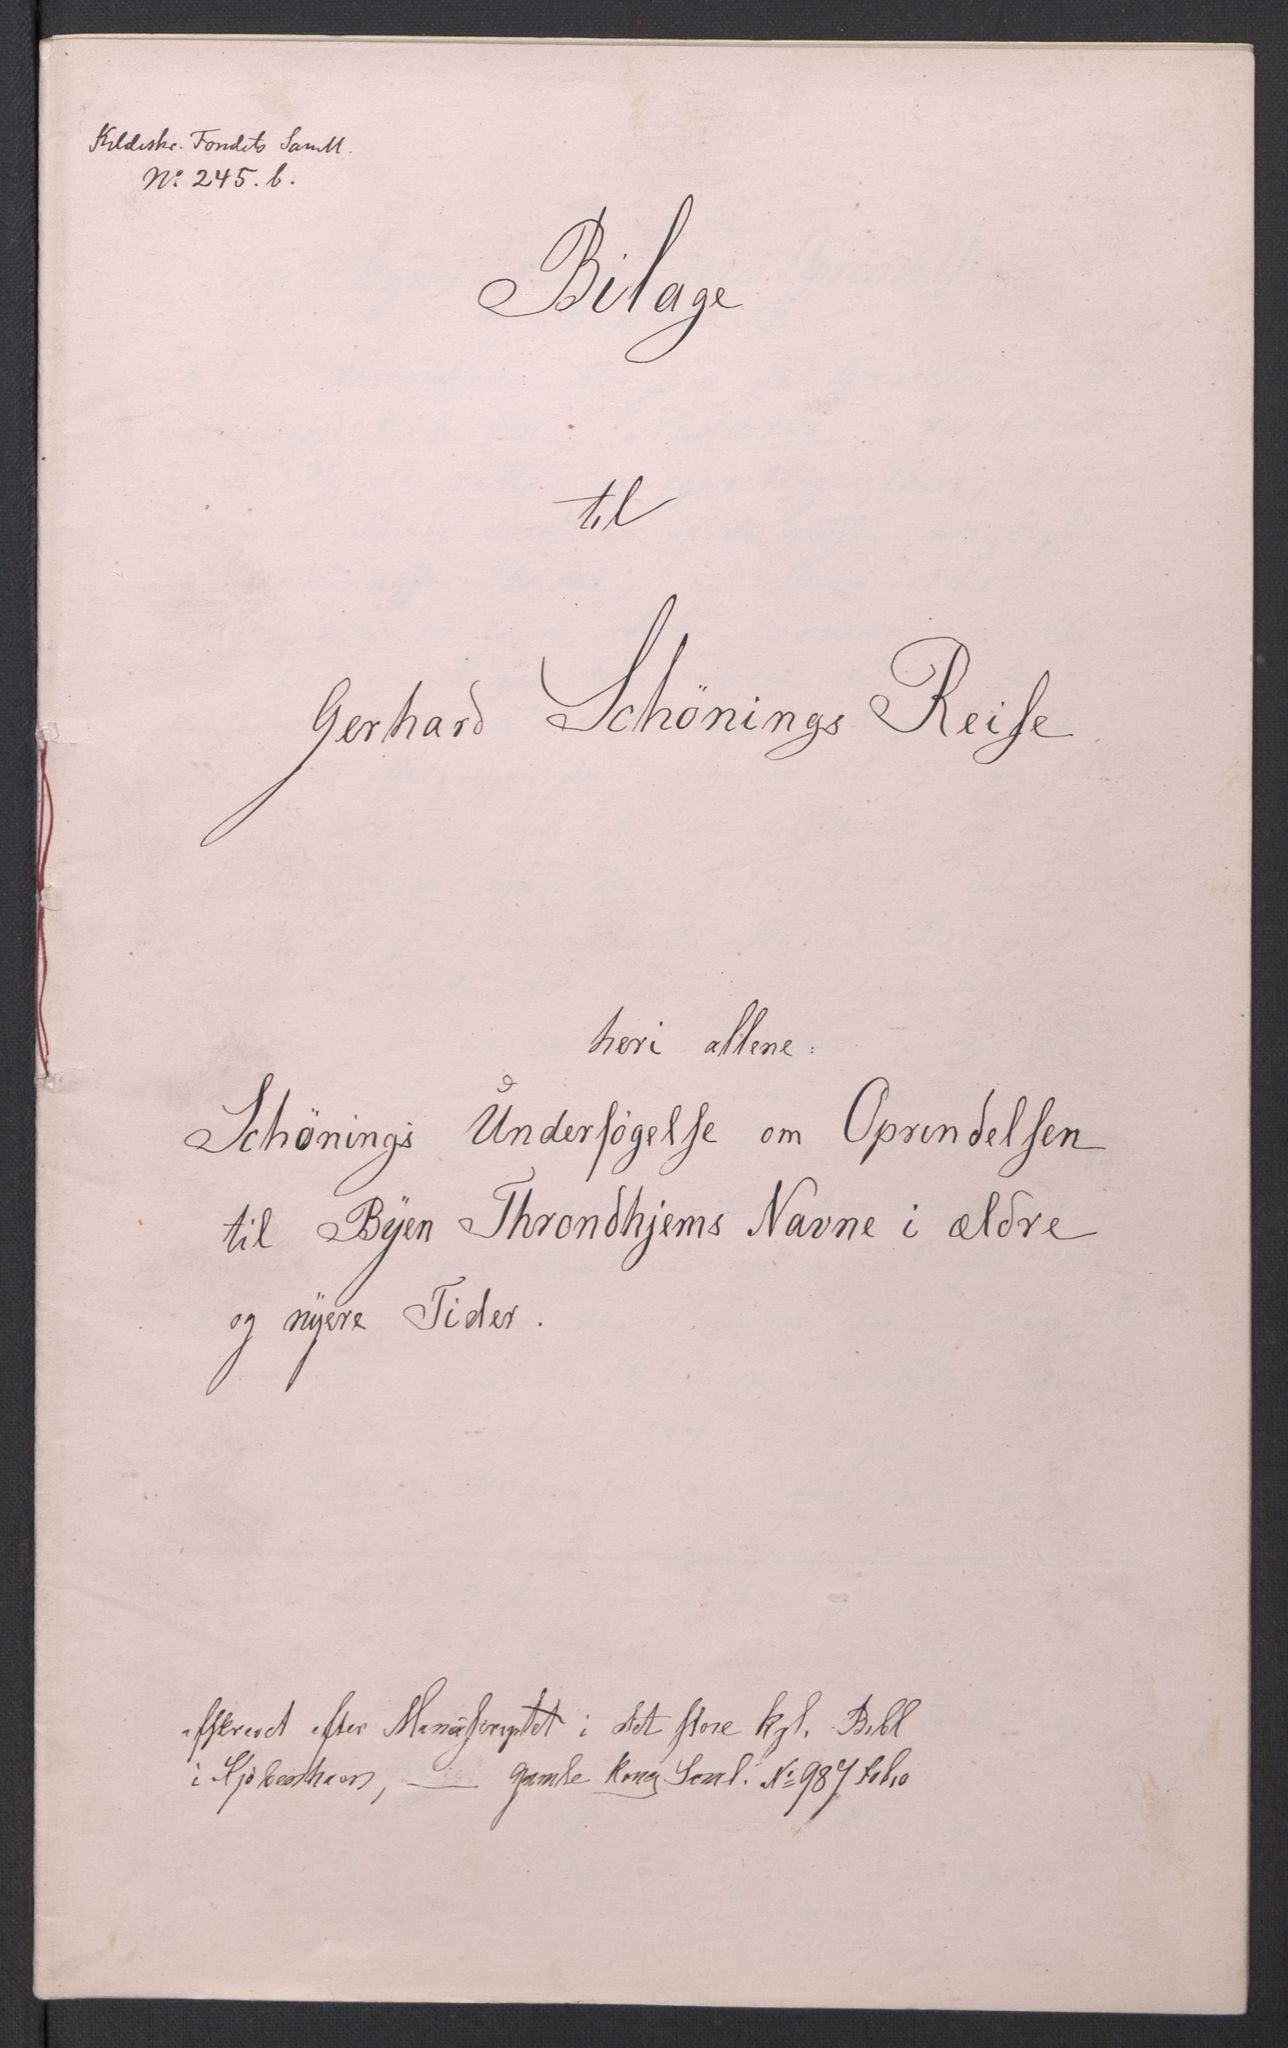 Kildeskr. Fondets Saml.
No 245. b.
Bilage
til
Gerhard Schönings Reise
heri allene:
Schönings Undersøgelse om Oprindelsen
til Bÿen Throndhjems Navne i ældre
og nÿere Tider.
afskrevet efter Manuscriptet i det store kgl. Bibl
i Kjöbenhavn, — gamle kong Saml. No 987 folio